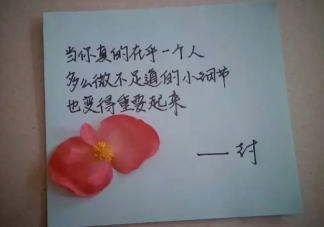 当你真的在乎一个人
多么微不足道的小细节
也变得重要起来
——封